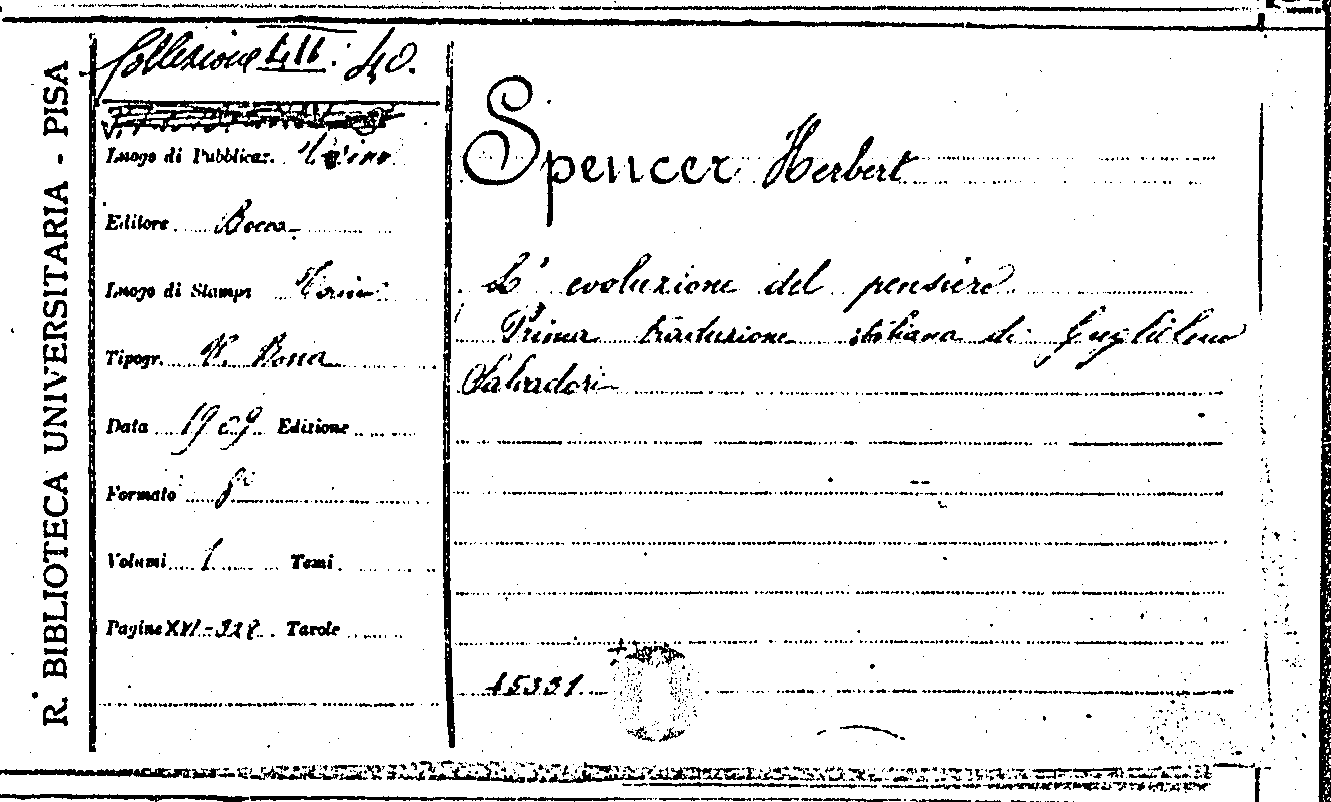 R. BIBLIOTECA UNIVERSITARIA - PISA
Collezione 4,11. 40.
Luogo di Pubblicaz. Torino
Editore Bocca
Luogo di Stampa Torino
Tipogr. V. Bona
Data 1909 Edizione
Formato 8°
Volumi 1 Tomi
Pagine XVI-328 Tavole
Spencer Herbert
L' evoluzione del pensiero
Prima traduzione italiana di Guglielmo
Salvadori
45331